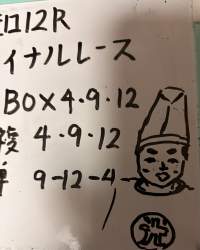 口12R
イナルレース
BOX4・9・12
複 4・9・12
単 9-12-4